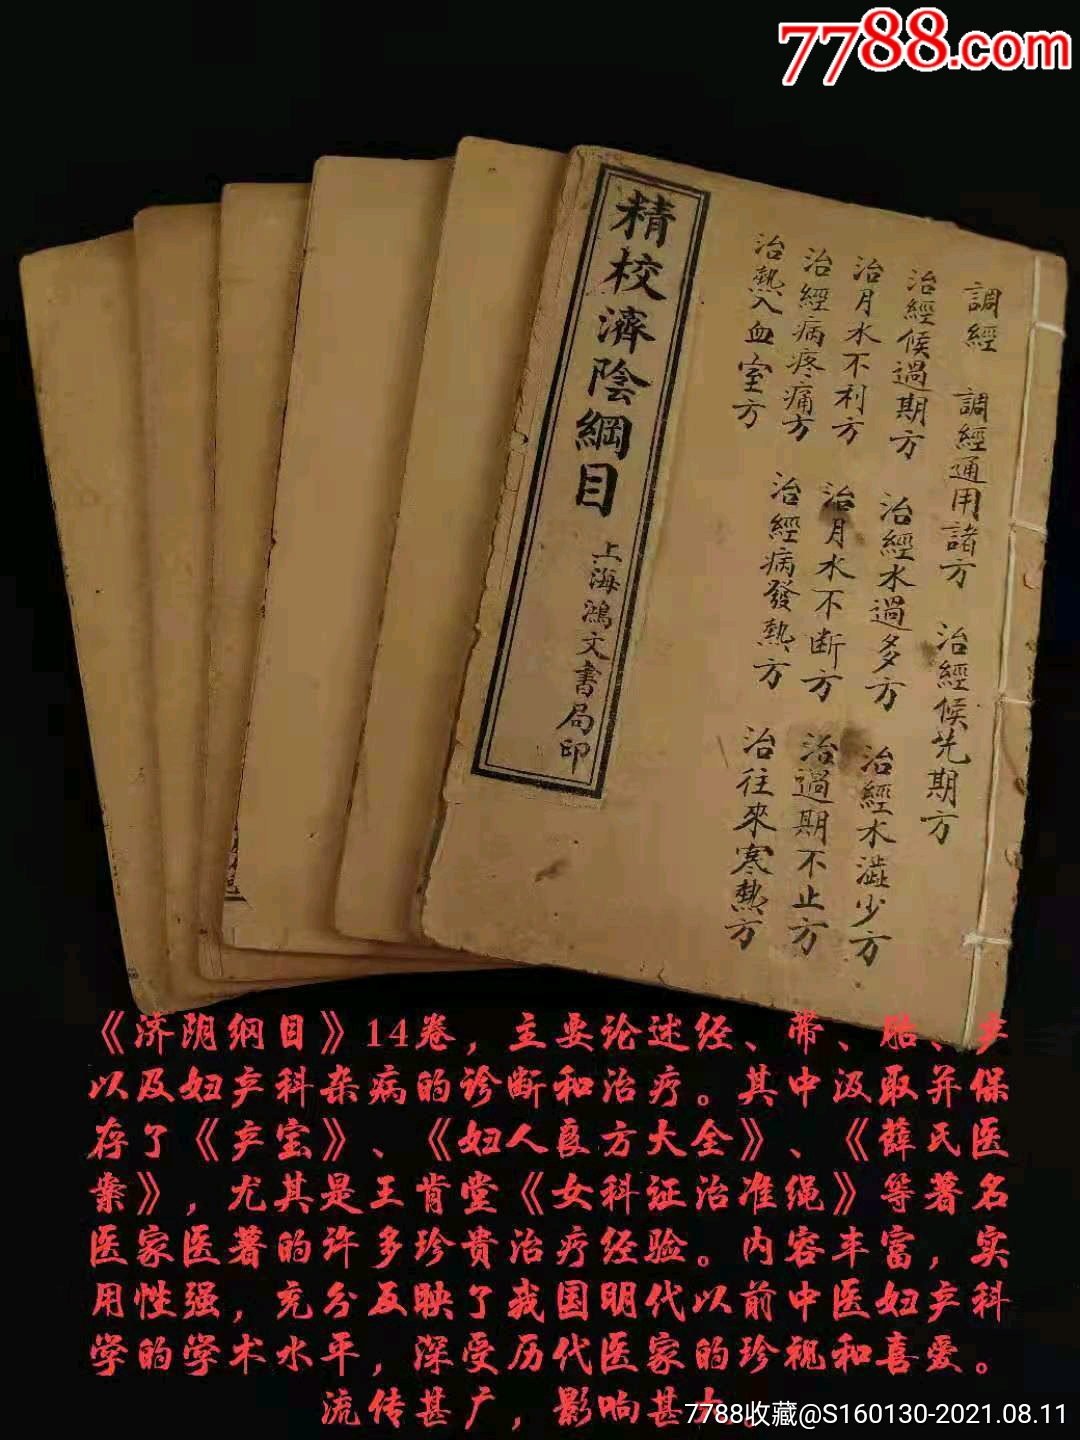 7788.com
調經 調經通用諸方 治經候先期方
治經候過期方 治經水過多方 治經水澁少方
治月水不利方 治月水不断方 治過期不止方
治經病疼痛方 治經病發熱方 治往來寒熱方
治熱入血室方
精校濟陰綱目 上海鴻文書局印
《济阴纲目》14卷，主要论述经、带、胎、产
以及妇产科杂病的诊断和治疗。其中汲取并保
存了《产宝》、《妇人良方大全》、《薛氏医
案》，尤其是王肯堂《女科证治准绳》等著名
医家医著的许多珍贵治疗经验。内容丰富，实
用性强，充分反映了我国明代以前中医妇产科
学的学术水平，深受历代医家的珍视和喜爱。
流传甚广，影响甚大。
7788收藏@S160130-2021.08.11